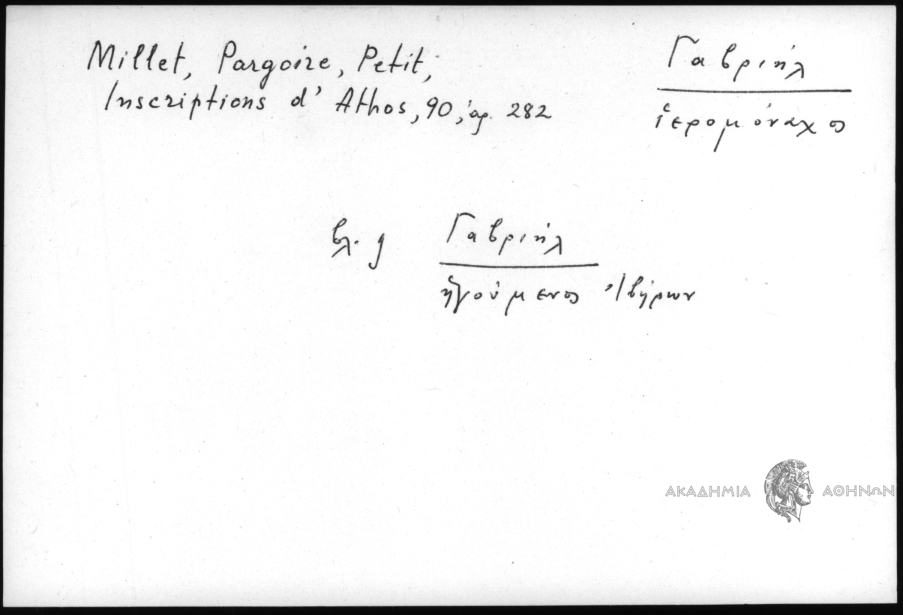 Millet, Pargoire, Petit,
Inscriptions d' Athos, 90, ἀρ. 282
Γαβριήλ
ἱερομόναχος
βλ.
Γαβριήλ
ἡγούμενος Ἰβήρων
ΑΚΑΔΗΜΙΑ ΑΘΗΝΩΝ